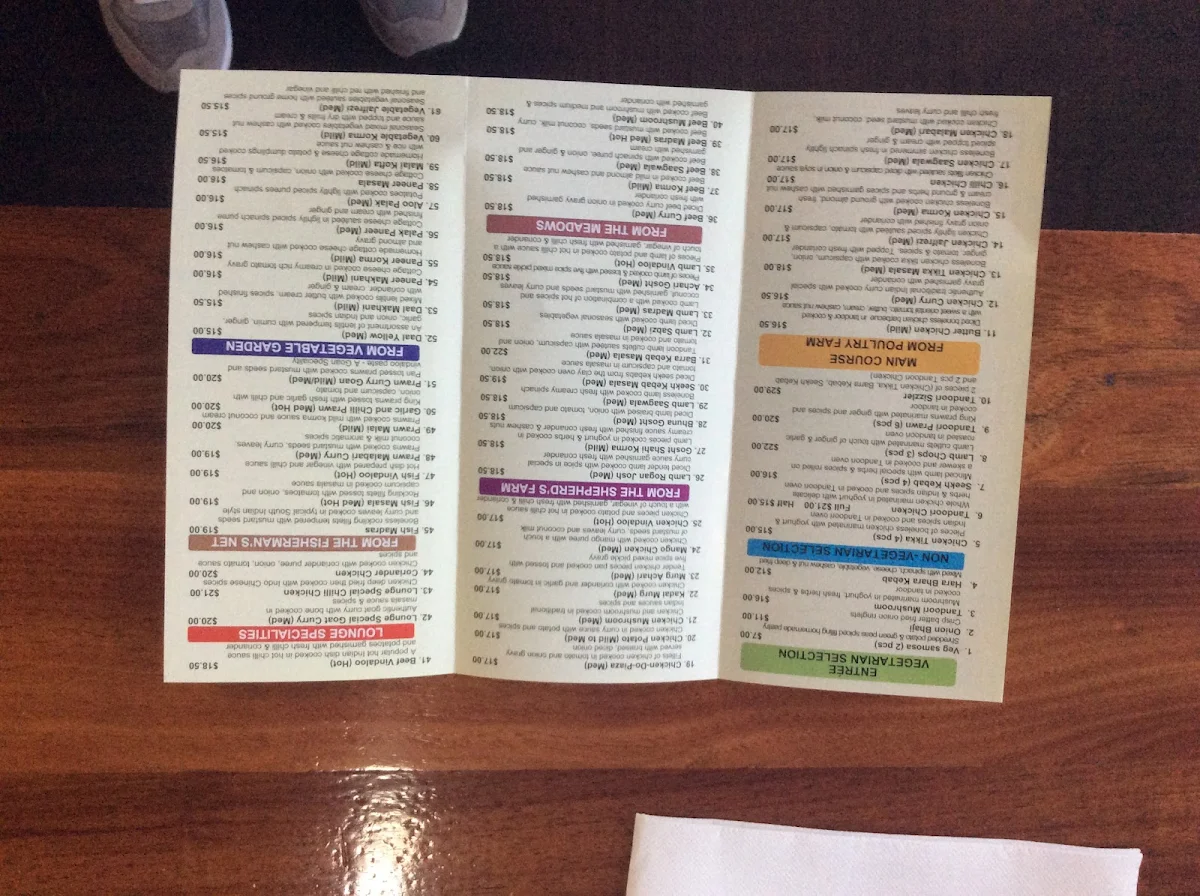 ENTRÉE
VEGETARIAN SELECTION
1. Veg samosa (2 pcs) $7.00
Shredded potato & green peas spiced filling homemade pastry
2. Onion Bhaji $11.00
Crisp batter fried onion ringlets
3. Tandoori Mushroom $16.00
Mushroom marinated in yoghurt, fresh herbs & spices
cooked in tandoor
4. Hara Bhara Kebab $12.00
Mixed with spinach, cheese, vegetable, cashew nut & deep fried
NON -VEGETARIAN SELECTION
5. Chicken Tikka (4 pcs) $15.00
Pieces of boneless chicken marinated with yoghurt &
Indian spices and cooked in Tandoori oven
6. Tandoori Chicken Full $21.00 Half $15.00
Whole chicken marinated in yoghurt with delicate
herbs & Indian spices and cooked in Tandoori oven
7. Seekh Kebab (4 pcs) $16.00
Minced lamb with special herbs & spices rolled on
a skewer and cooked in Tandoori oven
8. Lamb Chops (3 pcs) $22.00
Lamb cutlets marinated with touch of ginger & garlic
roasted in tandoori oven
9. Tandoori Prawn (6 pcs) $20.00
King prawns marinated with ginger and spices and
cooked in tandoor
10. Tandoori Sizzler $29.00
2 pieces of (Chicken Tikka, Barra Kebab, Seekh Kebab
and 2 pcs Tandoori Chicken)
MAIN COURSE
FROM POULTRY FARM
11. Butter Chicken (Mild) $16.50
Diced boneless chicken barbecue in tandoor & cooked
with a sweet oriental tomato, butter, cream, cashew nut sauce
12. Chicken Curry (Med) $16.50
Authentic traditional Indian curry cooked with special
gravy garnished with coriander
13. Chicken Tikka Masala (Med) $18.00
Boneless chicken tikka cooked with capsicum, onion,
ginger, tomato & spices. Topped with fresh coriander
14. Chicken Jalfrezi (Med) $17.00
Chicken lightly spiced sauteed with tomato, capsicum &
onion gravy finished with coriander
15. Chicken Korma (Mild) $17.00
Boneless chicken cooked with ground almond, fresh
cream & ground herbs and spices garnished with cashew nut
16. Chilli Chicken $17.00
Chicken fillets cooked with deep capsicum & onion in soya sauce
17. Chicken Saagwala (Med) $17.00
Boneless chicken simmered in fresh spinach lightly
spiced topped with cream & ginger
18. Chicken Malabari (Med) $17.00
Chicken cooked with mustard seed coconut milk,
fresh chilli and curry leaves
19. Chicken-Do-Piaza (Med) $17.00
Fillets of chicken cooked in tomato and onion gravy
served with braised, diced onion
20. Chicken Potato (Mild to Med) $17.00
Chicken cooked in curry sauce with potato and spices
21. Chicken Mushroom (Med) $17.00
Chicken and mushroom cooked in traditional
Indian sauces and spices
22. Katai Murg (Med) $17.00
Chicken cooked with coriander and garlic in tomato gravy
23. Murg Achari (Med) $17.00
Tender chicken pieces pan cooked and tossed with
five spice mixed pickle gravy
24. Mango Chicken (Med) $17.00
Chicken cooked with mango puree with a touch
of mustard seeds, curry leaves and coconut milk
25. Chicken Vindaloo (Hot) $17.00
Chicken pieces and potato cooked in hot chilli sauce
with a touch of vinegar, garnished with fresh chilli & coriander
FROM THE SHEPHERD'S FARM
26. Lamb Rogan Josh (Med) $18.50
Diced tender lamb cooked with onion in special
curry sauce garnished with fresh coriander
27. Gosht Shahi Korma (Mild) $18.50
Lamb pieces cooked in yoghurt & herbs cooked in
creamy sauce finished with fresh coriander & cashew nuts
28. Bhuna Gosht (Med) $18.50
Diced lamb braised with onion, tomato and capsicum
29. Lamb Saagwala (Med) $18.50
Boneless lamb cooked with creamy spinach
30. Seekh Kebab Masala (Med) $19.50
Diced seekh kebabs from the clay oven cooked with onion,
tomato and capsicum in masala sauce
31. Barra Kebab Masala (Med) $22.00
Tandoori lamb cutlets sauteed with capsicum, onion and
tomato and cooked in masala sauce
32. Lamb Sabzi (Med) $18.50
Diced lamb cooked with seasonal vegetables
33. Lamb Madras (Med) $18.50
Lamb cooked with a combination of hot spices and
coconut, garnished with mustard seeds and curry leaves
34. Achari Gosht (Med) $18.50
Pieces of lamb cooked & tossed with five spice mixed pickle sauce
35. Lamb Vindaloo (Hot) $18.50
Pieces of lamb and potato cooked in hot chilli sauce with a
touch of vinegar, garnished with fresh chilli & coriander
FROM THE MEADOWS
36. Beef Curry (Med) $18.50
Diced beef curry cooked in onion gravy garnished
with fresh coriander
37. Beef Korma (Mild) $18.50
Beef cooked in mild almond and cashew nut sauce
38. Beef Saagwala (Med) $18.50
Beef cooked with spinach puree, onion & ginger and
garnished with cream
39. Beef Madras (Med Hot) $18.50
Beef cooked with mustard seeds, coconut milk, curry
40. Beef Mushroom (Med) $18.50
Beef cooked with mushroom and medium spices &
garnished with coriander
41. Beef Vindaloo (Hot) $18.50
A popular hot Indian dish cooked in hot chilli sauce
and potatoes garnished with fresh chilli & coriander
LOUNGE SPECIALITIES
42. Lounge Special Goat Curry (Med) $20.00
Authentic goat curry with bone cooked in
masala sauce & spices
43. Lounge Special Chilli Chicken $21.00
Chicken deep fried then cooked with Indo Chinese spices
44. Coriander Chicken $20.00
Chicken cooked with coriander puree, onion, tomato sauce
and spices
FROM THE FISHERMAN'S NET
45. Fish Madras $19.00
Boneless rockling fillets tempered with mustard seeds
and curry leaves cooked in typical South Indian style
46. Fish Masala (Med) $19.00
Rockling fillets tossed with tomatoes, onion and
capsicum cooked in masala sauce
47. Fish Vindaloo (Hot) $19.00
Hot dish prepared with vinegar and chilli sauce
48. Prawn Malabari Curry (Med) $19.00
Prawns cooked with mustard seeds, curry leaves,
coconut milk & aromatic spices
49. Prawn Malai (Mild) $20.00
Prawns cooked with mild korma sauce and coconut cream
50. Garlic and Chilli Prawn (Med Hot) $20.00
King prawns tossed with fresh garlic and chilli with
onion, capsicum and tomato
51. Prawn Curry Goan (Mild/Med) $20.00
Pan tossed prawns cooked with mustard seeds and
vindaloo paste - A Goan Speciality
FROM VEGETABLE GARDEN
52. Daal Yellow (Med) $15.00
An assortment of lentils tempered with cumin, ginger,
garlic, onion and Indian spices
53. Daal Makhani (Mild) $15.50
Mixed lentils cooked with butter cream, spices finished
with coriander, cream & ginger
54. Paneer Makhani (Mild) $16.00
Cottage cheese cooked in creamy rich tomato gravy
55. Paneer Korma (Mild) $16.00
Homemade cottage cheese cooked with cashew nut
and almond gravy
56. Palak Paneer (Med) $16.00
Cottage cheese sauteed in lightly spiced spinach puree
finished with cream and ginger
57. Aloo Palak (Med) $16.00
Potatoes cooked with lightly spiced puree spinach
58. Paneer Masala $16.00
Cottage cheese cooked with onion, capsicum & tomatoes
59. Malai Kofta (Mild) $16.50
Homemade cottage cheese & potato dumplings cooked
with rice & cashew nut sauce
60. Vegetable Korma (Mild) $15.50
Seasonal mixed vegetables cooked with cashew nut
sauce and topped with dry fruits & cream
61. Vegetable Jalfrezi (Med) $15.50
Seasonal vegetables sauteed with home ground spices
and finished with red chilli and vinegar